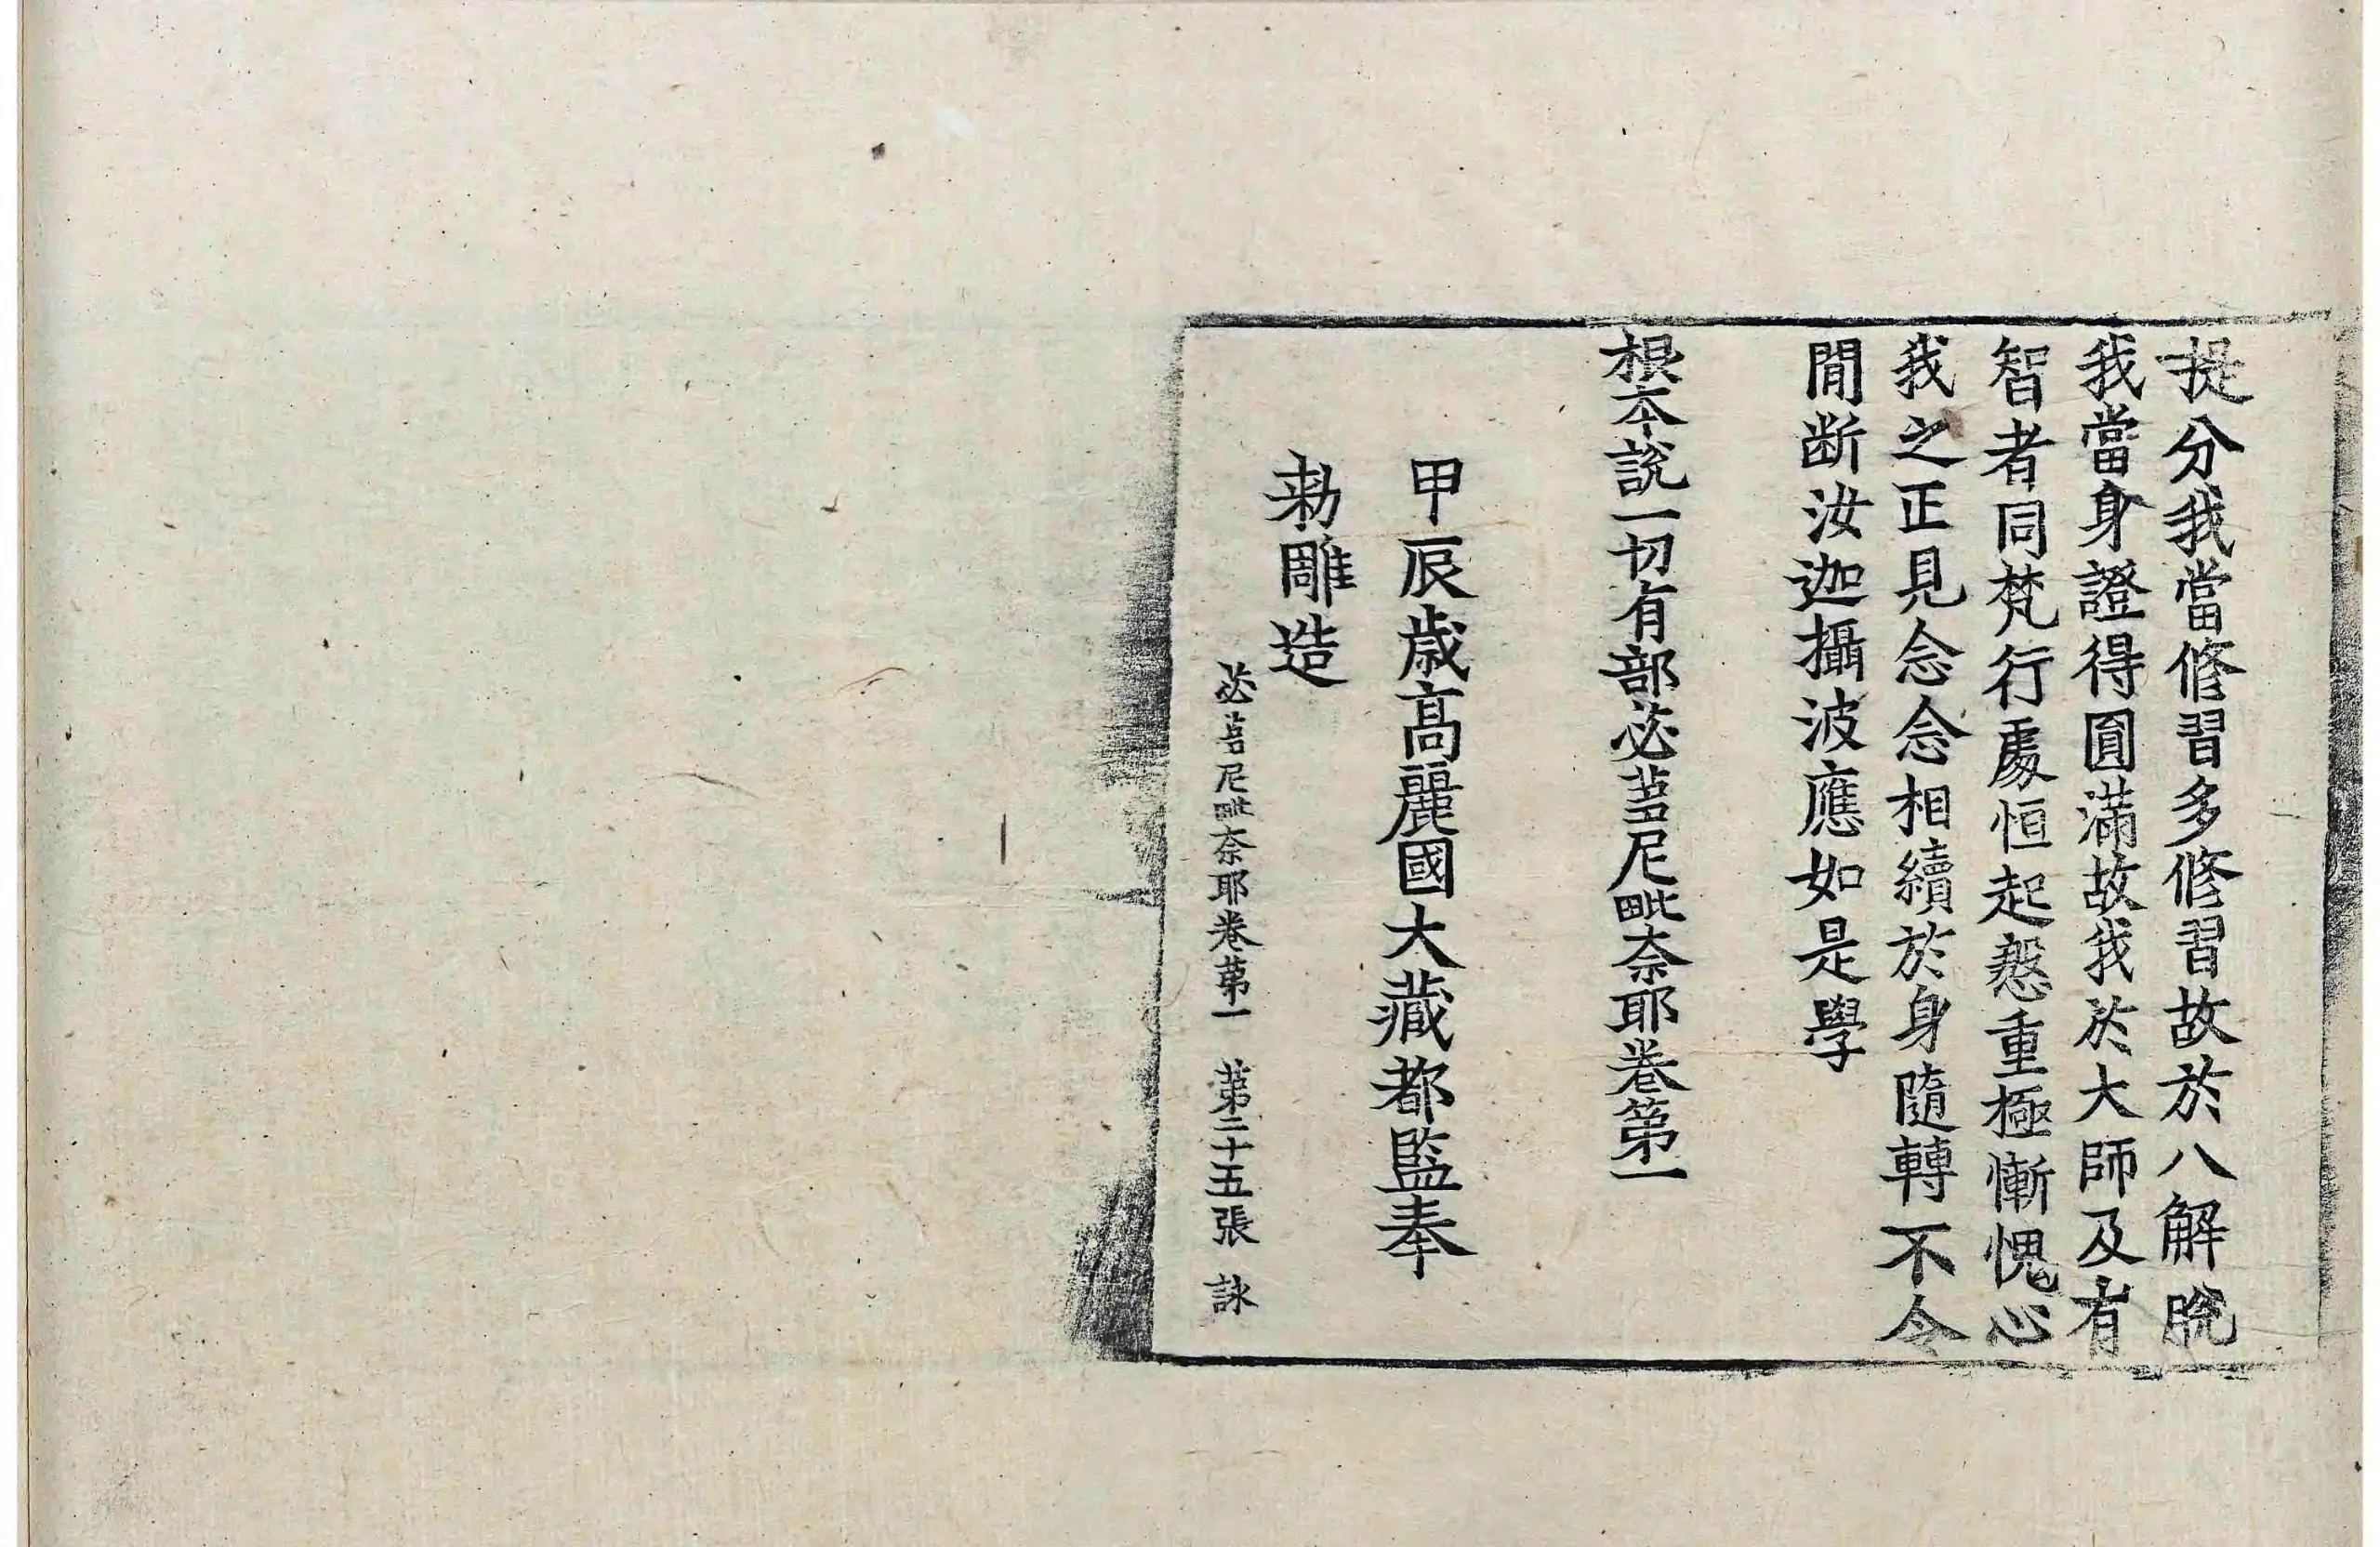 提分我當修習多修習故於八解脫
我當身證得圓滿故我於大師及有
智者同梵行處恒起慇重極慚愧心
我之正見念念相續於身隨轉不令
閒断汝迦攝波應如是學
根本說一切有部苾蒭尼毗奈耶卷第一
甲辰歲高麗國大藏都監奉
勅雕造
苾蒭尼毗奈耶卷第一 第二十五張 詠